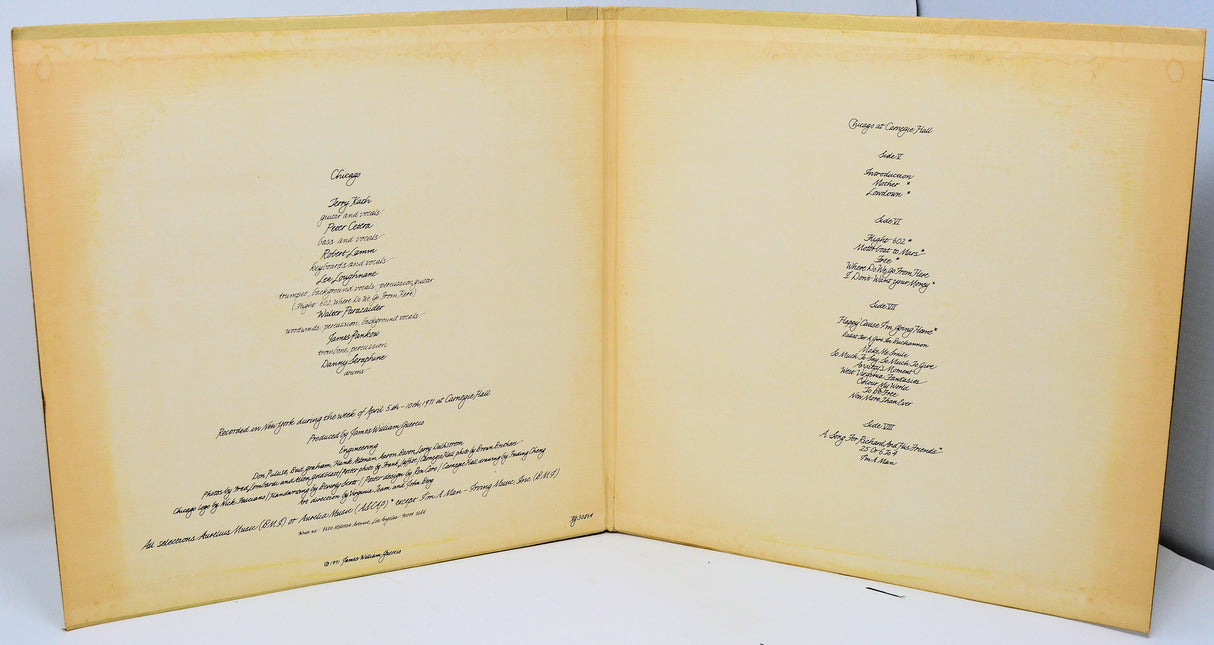 Chicago
Terry Kath
guitar and vocals
Peter Cetera
bass and vocals
Robert Lamm
keyboards and vocals
Lee Loughnane
trumpet, background vocals, percussion, guitar
(Flight 602, Where Do We Go From Here)
Walter Parazaider
woodwinds, percussion, background vocals
James Pankow
trombone, percussion
Danny Seraphine
drums
Recorded in New York during the week of April 5th-10th, 1971 at Carnegie Hall
Produced by James William Guercio
Engineering
Don Puluse, Bud Graham, Hank Altman, Aaron Baron, Larry Dahlstrom
Photos by Fred Lombardi and Allen Goldblatt/Poster photo by Frank Laffitte/Carnegie Hall photo by Brown Brothers
Chicago logo by Nick Fasciano/Handwriting by Beverly Scott/Poster design by Ron Coro/Carnegie Hall drawing by Puding Cheng
Art direction by Virginia Team and John Berg
All selections Aurelius Music (B.M.I) or Aurelia Music (ASCAP)* except I'm A Man - Irving Music, Inc. (B.M.I)
Los Angeles 90069 USA
© 1971 James William Guercio
Chicago at Carnegie Hall
Side V
Introduction
Mother *
Lowdown *
Side VI
Flight 602 *
Motorboat to Mars *
Free *
Where Do We Go From Here
I Don't Want Your Money *
Side VII
Happy 'Cause I'm Going Home *
Ballet For A Girl In Buchannon
Make Me Smile
So Much To Say, So Much To Give
Anxiety's Moment
West Virginia Fantasies
Colour My World
To Be Free
Now More Than Ever
Side VIII
A Song For Richard And His Friends *
25 Or 6 To 4
I'm A Man